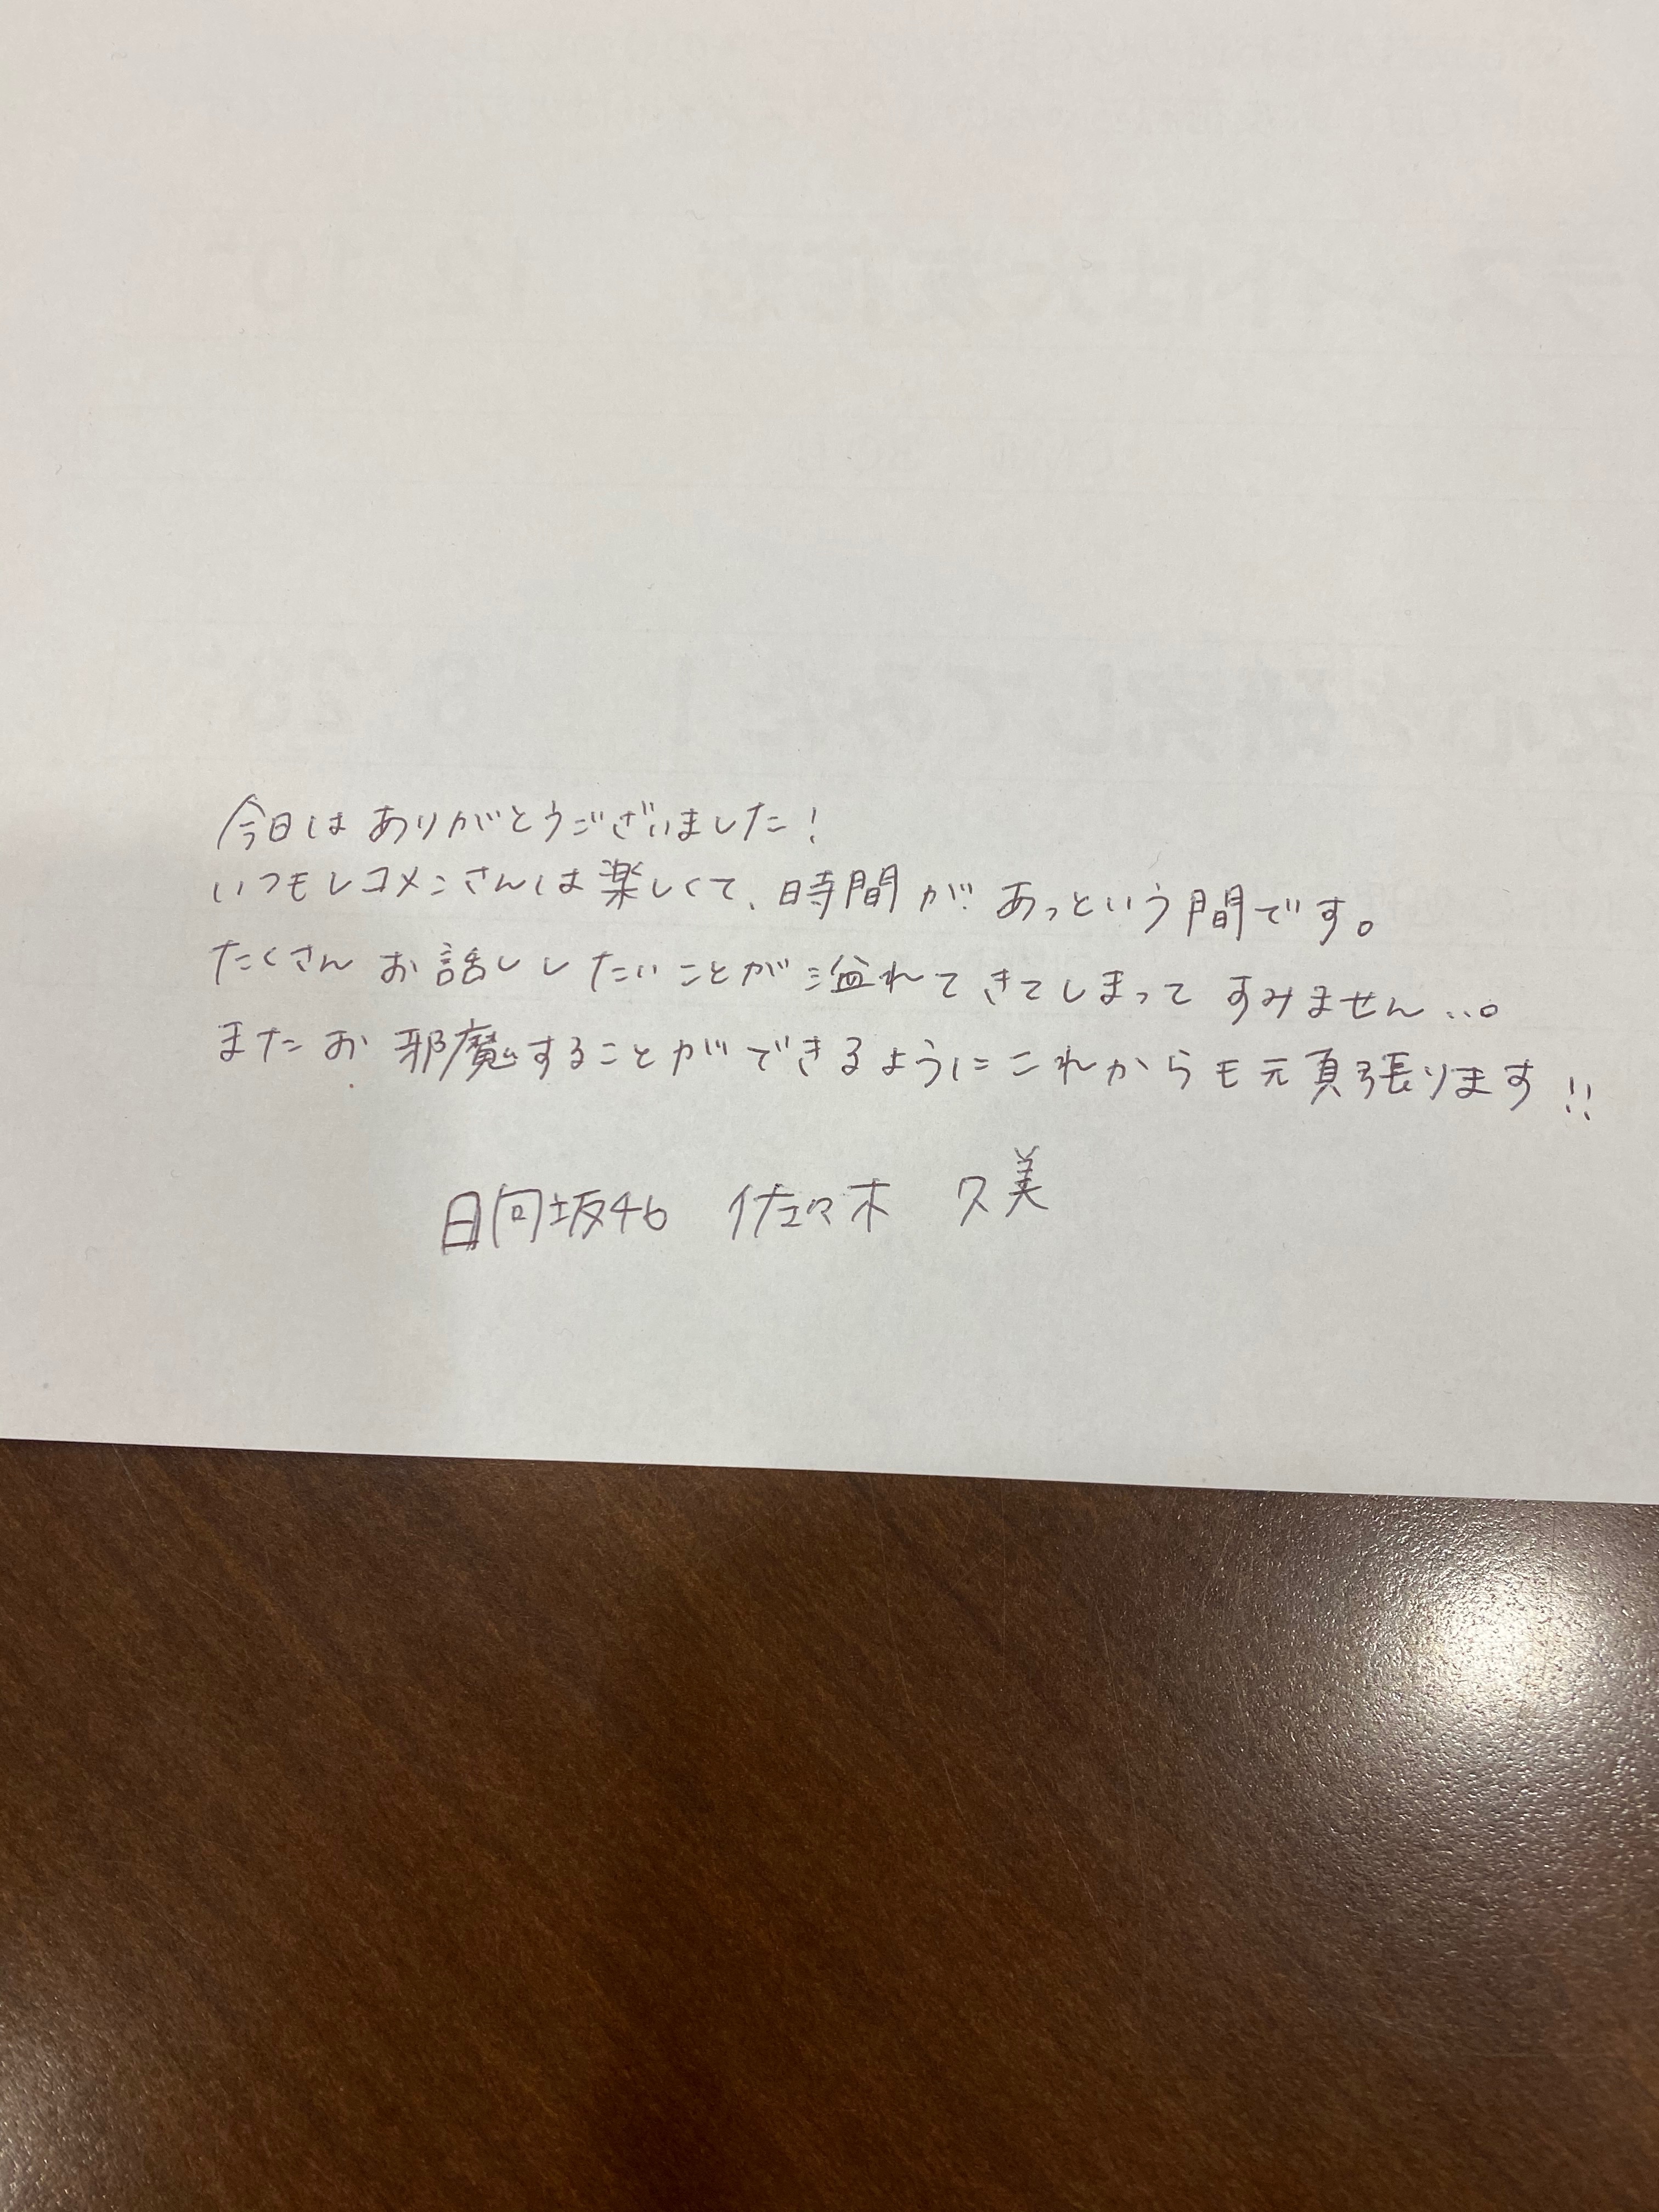 今日はありがとうございました!
いつもレコメンさんは楽しくて、時間があっという間です。
たくさんお話ししたいことが溢れてきてしまってすみません...。
またお邪魔することができるようにこれからも頑張ります!!
日向坂46 佐々木 久美